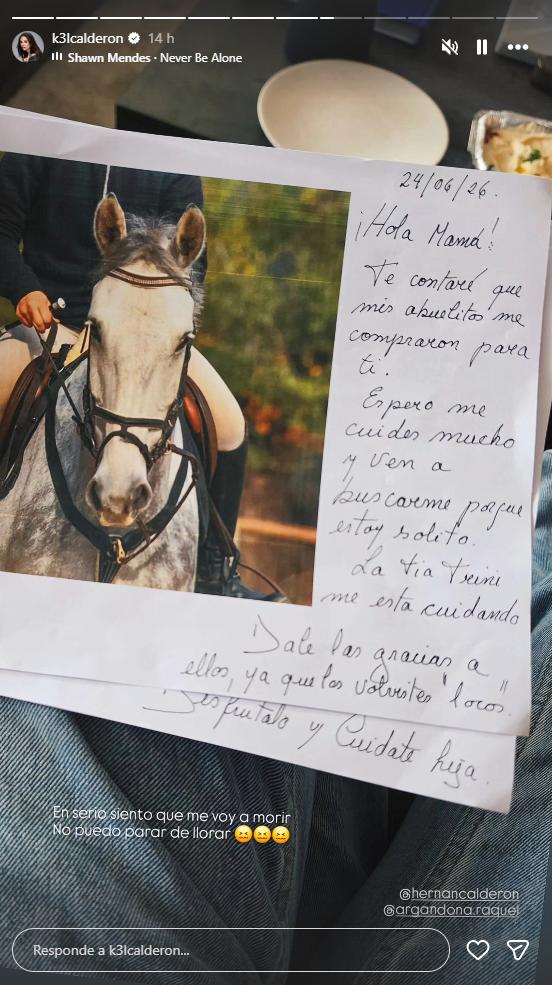 k3lcalderon 14 h
Shawn Mendes · Never Be Alone
24/06/26.
¡Hola Mamá!
Te contaré que
mis abuelitos me
compraron para
ti.
Espero me
cuides mucho
y ven a
buscarme porque
estoy solito.
La tia Trini
me esta cuidando
Dale las gracias a
ellos, ya que los volvistes "locos".
Disfrutalo y Cuidate hija.
En serio siento que me voy a morir
No puedo parar de llorar 😖😖😖
@hernancalderon
@argandona.raquel
Responde a k3lcalderon...